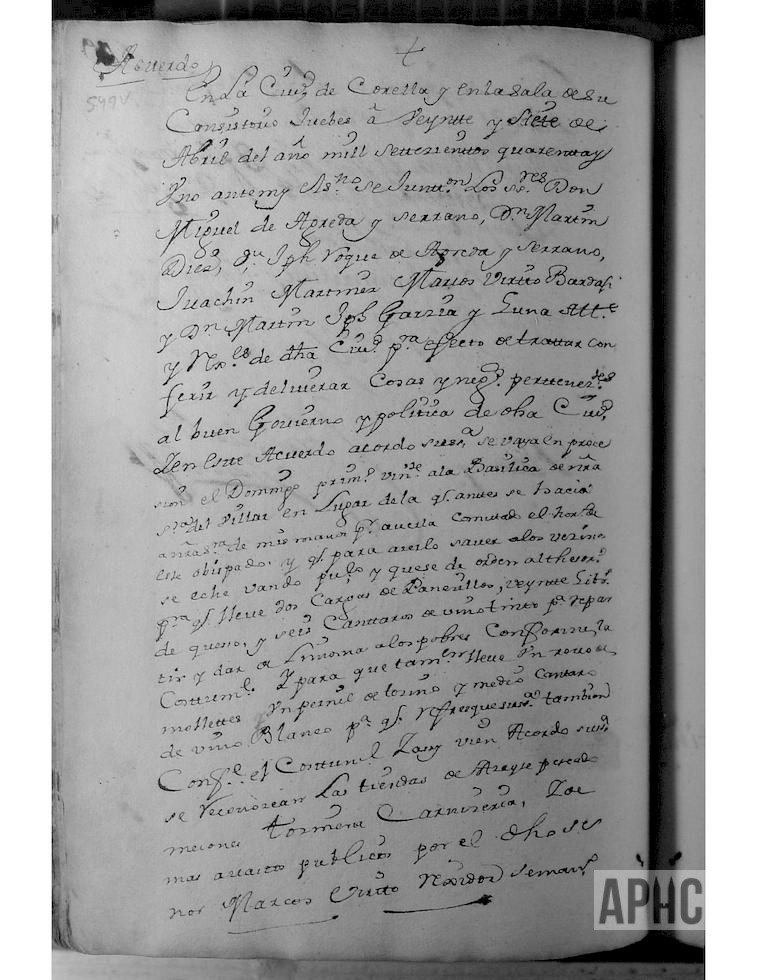 Acuerdo
549v
En La Ciud de Corella y en la Sala de su
Consistorio Juebes â Veyntte y Siete de
Abril del año mill settezientos quarenta y
Vno ante my el ssno se Junton Los sres Don
Miguel de Agreda y Serrano, Dn Martin
Diez, Jph Roque de Agreda y Serrano,
Juachin Martinez Marcos Virto Bardaji
y Dn Martin Jph Garzia y Luna Alle
y Rxres de dha Ciud pra efecto de trattar con
ferir y deliuerar Cosas y negs perttenezes
al buen Gouierno y politica de dha Ciud
Y en Este Acuerdo acordo su ssa se vaya en proce
sion el Domingo primo vinte a la Basilica de nra
sra del Villar en Lugar de la q antes se hacia
a nra sra de mismanos pr auerla comutado el
Este obispado, y q para acerlo sauer a los vezinos
se eche vando puco y que se de orden al thesoro
pra q lleve dos Cargas de Panezillos, veyntte Libs
de queso, y seis Canttaros de vino tinto pa repar
tir y dar de Limosna a los pobres Conforme la
Costume Y para que tamn lleve Vn rovo de
molletes Vn pernil de tozino y medio Cantaro
de vino Blanco pa q Refresque su ssa tambien
Confe el Costume Y assi vien Acordo su ssa
se reconozcan Las tiendas de Azeyte pescado
mesones Carnizeria, Y de
mas auasto publico por el dho Se
nor Marcos Virto Rexidor Semano
APHC